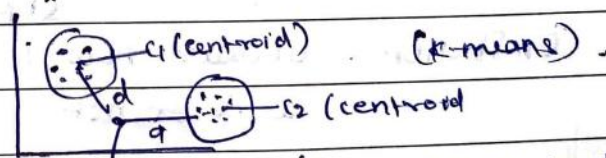 C1 (centroid) (K-means).
d
C2 (centroid
d